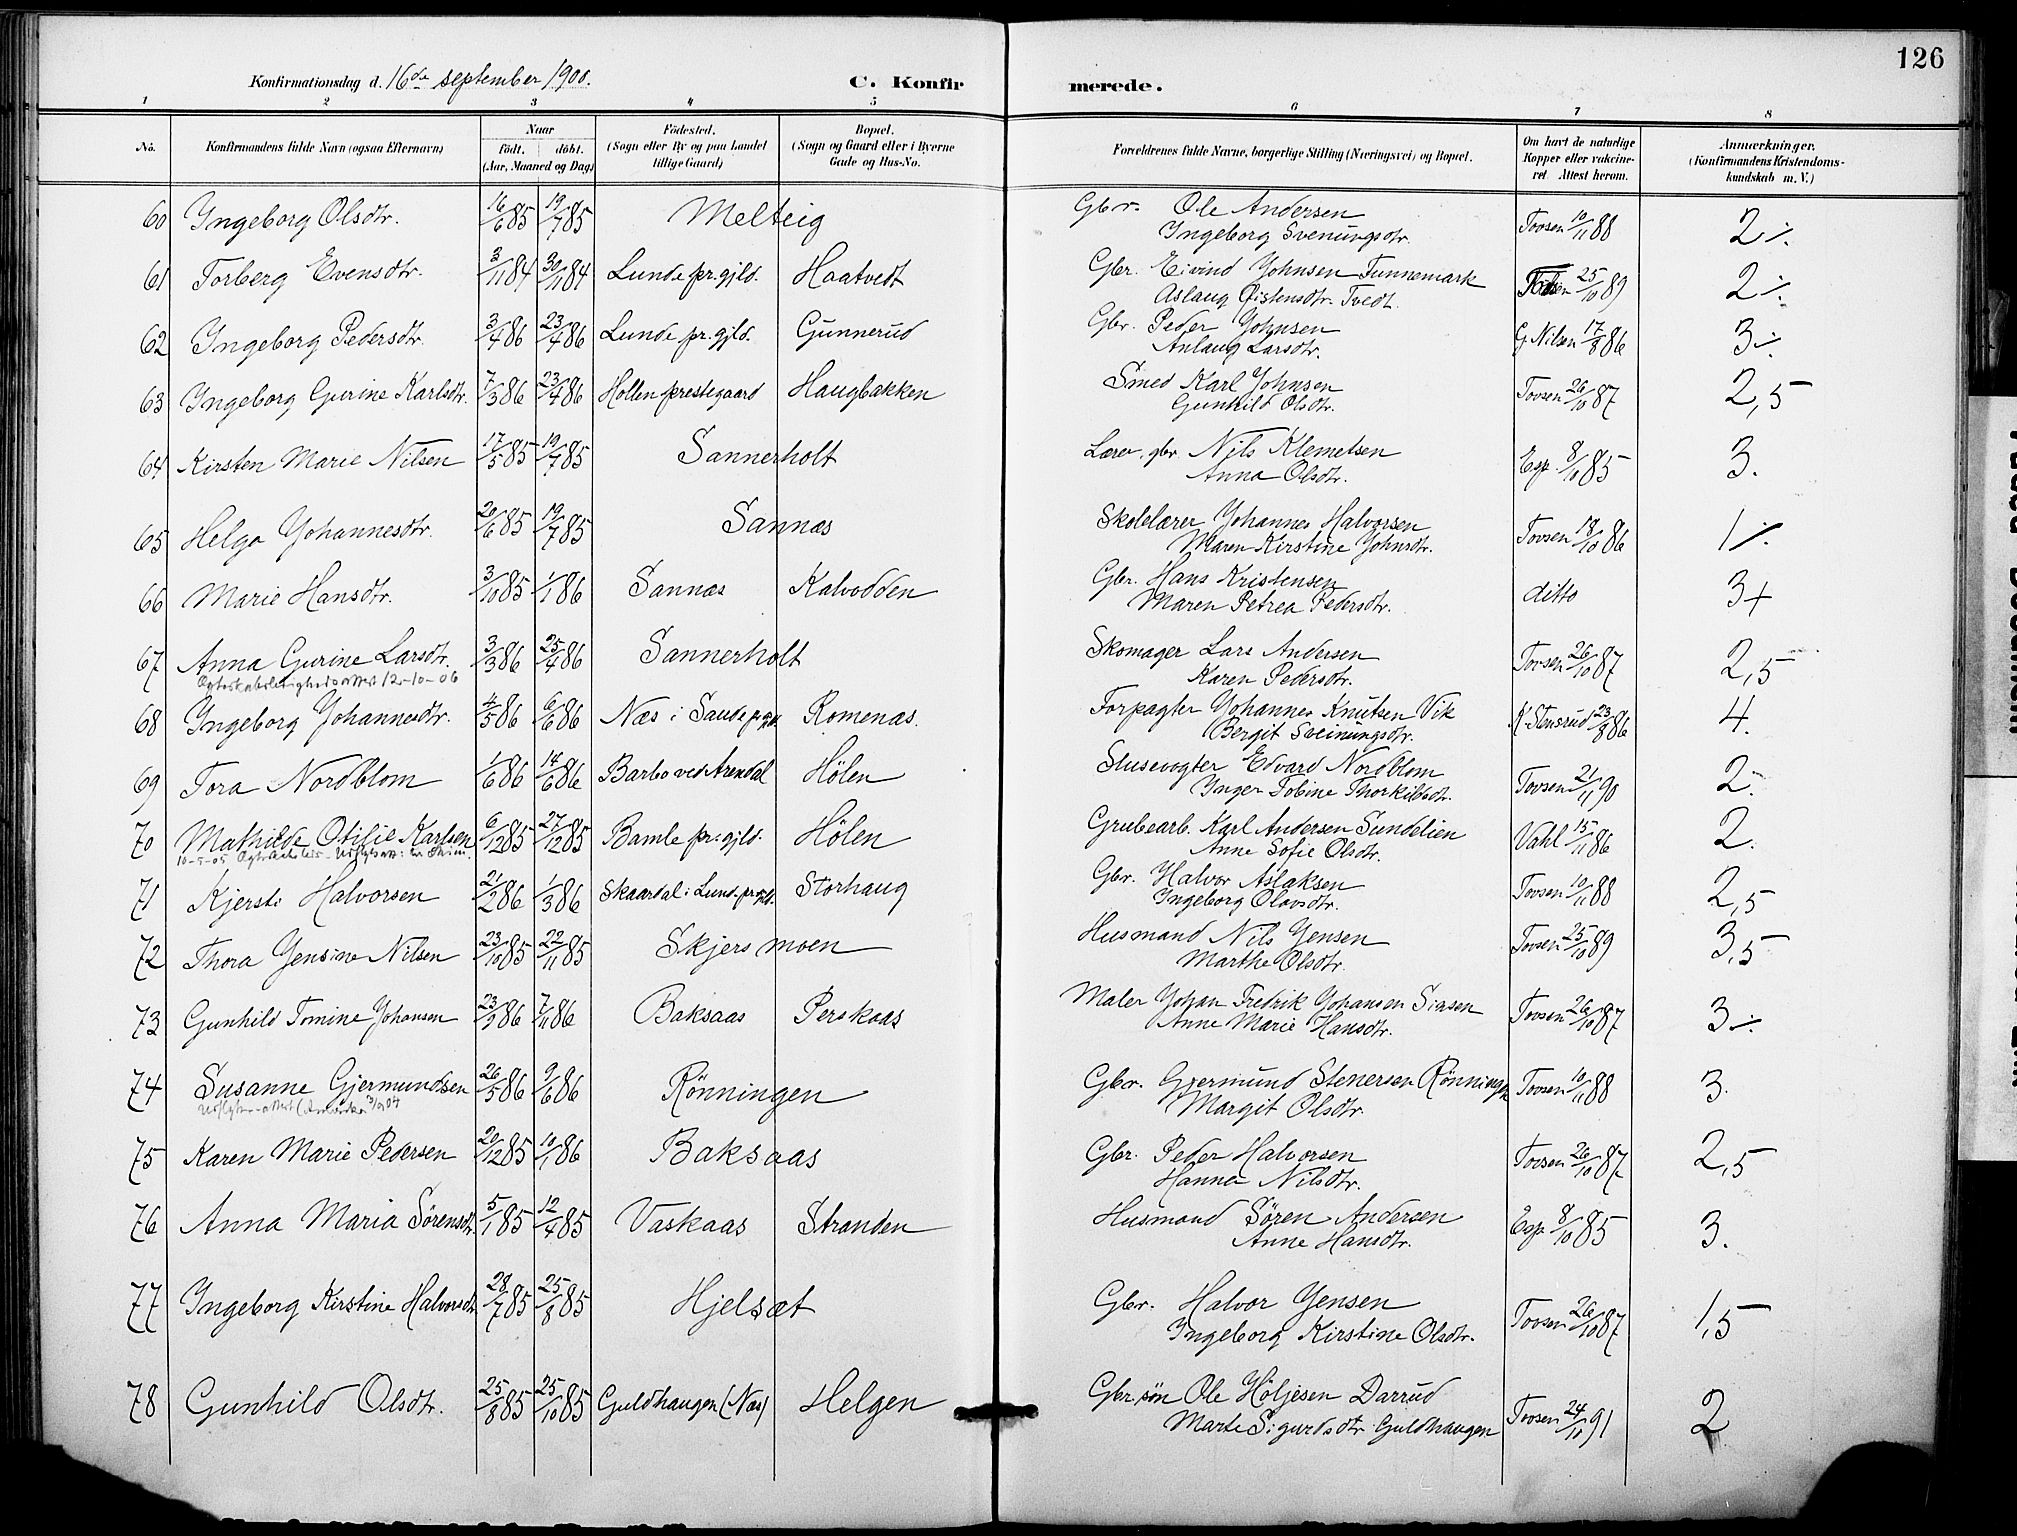 126
Konfirmationsdag d. 16de september 1900. C. Konfirmerede.
1 2 3 4 5 6 7 8
No. Konfirmandens fulde Navn (ogsaa Efternavn) Naar født. døbt. (Aar, Maaned og Dag) Fødested. (Sogn eller By og paa Landet tillige Gaard) Bopæl. (Sogn og Gaard eller i Byerne Gade og Hus-No. Forældrenes fulde Navne, borgerlige Stilling (Næringsvei) og Bopæl. Om havt de naturlige Kopper eller vaccineret Attest herom. Anmærkninger. (Konfirmandens Kristendomskundskab m. V.)
60 Ingeborg Olsdtr. 16/6 85 19/7 85 Melteig Gbr. Ole Andersen Tovsen 10/11 88 2 ./.
Ingeborg Svenungsdtr.
61 Torberg Evensdtr. 3/11 84 30/11 84 Lunde pr.gjld. Haatvedt Gbr. Eivind Johnsen Tunnemark 25/10 89 2 ./.
Aslaug Øistensdtr. Tvedt.
62 Ingeborg Pedersdtr. 3/4 86 23/4 86 Lunde pr.gjld. Gunnerud Gbr. Peder Johnsen G Nilsen 17/8 86 3 ./.
Anlaug Larsdtr.
63 Ingeborg Gurine Karlsdtr. 7/3 86 23/4 86 Hollen prestegaard Haugbakken Smed Karl Johnsen Tovsen 26/10 87 2,5
Gunhild Olsdtr.
64 Kirsten Marie Nilsen 17/5 85 19/7 85 Sannerholt Lærer, gbr Nils Klemetsen Esp. 8/10 85 3.
Anna Olsdtr.
65 Helga Johannesdtr. 20/6 85 19/7 85 Sannæs Skolelærer Johannes Halvorsen Tovsen 18/10 86 1 ./.
Maren Kirstine Johnsdtr.
66 Marie Hansdtr. 3/10 85 1/1 86 Sannæs Kalvodden Gbr. Hans Kristensen ditto 3 +
Maren Petrea Pedersdtr.
67 Anna Gurine Larsdtr. 3/3 86 25/4 86 Sannerholt Skomager Lars Andersen Tovsen 26/10 87 2,5
12-10-06 Karen Pedersdtr.
68 Ingeborg Johannesdtr. 4/5 86 6/6 86 Næs i Saude pr.gjld. Romenæs. Forpagter Johannes Knutsen Vik K. Stensrud 23/8 86 4.
Bergit Sveinungsdtr.
69 Tora Nordblom 1/6 86 14/6 86 Barbo ved Arendal Hölen Slusevogter Edvard Nordblom Tovsen 21/11 90 2.
Inger Tobine Thorkildsdtr.
70 Mathilde Otilie Karlsen 6/12 85 27/12 85 Bamle pr.gjld. Hölen Grubearb. Karl Andersen Sundelien Vahl 15/11 86 2.
10-5-05 Anne Sofie Olsdtr.
71 Kjersti Halvorsen 21/2 86 1/3 86 Skaardal i Lunde pr.gjld. Storhaug Gbr. Halvor Aslaksen Tovsen 10/11 88 2,5
Ingeborg Olavsdtr.
72 Thora Jensine Nilsen 23/10 85 22/11 85 Skjersmoen Husmand Nils Jensen Tovsen 25/10 89 3,5
Marthe Olsdtr.
73 Gunhild Tomine Johansen 23/9 86 7/11 86 Baksaas Perskaas Maler Johan Fredrik Johansen Tovsen 26/10 87 3 ./.
Anne Marie Hansdtr.
74 Susanne Gjermundsen 26/5 86 9/6 86 Rönningen Gbr. Gjermund Stenersen Rönningen Tovsen 10/11 88 3.
Margit Olsdtr.
75 Karen Marie Pedersen 20/12 85 10/1 86 Baksaas Gbr. Peder Halvorsen Tovsen 26/10 87 2,5
Hanna Nilsdtr.
76 Anna Maria Sörensdtr. 5/1 85 12/4 85 Vaskaas Stranden Husmand Sören Andersen Esp. 8/10 85 3.
Anne Hansdtr.
77 Ingeborg Kirstine Halvorsdtr. 28/7 85 25/8 85 Hjelsæt Gbr. Halvor Jensen Tovsen 26/10 87 1,5
Ingeborg Kirstine Olsdtr.
78 Gunhild Olsdtr. 25/8 85 25/10 85 Guldhaugen (Næs) Helgen Gbr. sön Ole Höljesen Darrud Tovsen 24/11 91 2
Marte Sigurdsdtr. Guldhaugen